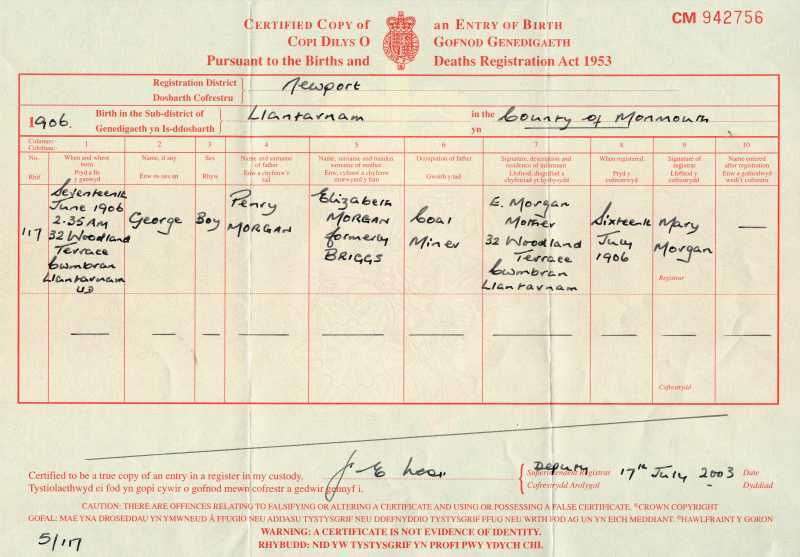 CERTIFIED COPY of an ENTRY OF BIRTH
COPI DILYS O GOFNOD GENEDIGAETH
Pursuant to the Births and Deaths Registration Act 1953
CM 942756
Registration District Newport
Dosbarth Cofrestru
1906. Birth in the Sub-district of Llantarnam in the County of Monmouth
Genedigaeth yn Is-ddosbarth yn
Columns:- 1 2 3 4 5 6 7 8 9 10
No. When and where born Name, if any Sex Name and surname of father Name, surname and maiden surname of mother Occupation of father Signature, description and residence of informant When registered Signature of registrar Name entered after registration
Rhif Pryd a lle y ganwyd Enw os oes un Rhyw Enw a chyfenw'r tad Gwaith y tad Pryd y cofrestrwyd Llofnod y cofrestrydd
117
Seventeenth
June 1906
2.35 AM
32 Woodland
Terrace
Cwmbran
Llantarnam
UD
George
Boy
Penry
MORGAN
Elizabeth
MORGAN
formerly
BRIGGS
Coal
Miner
E. Morgan
Mother
32 Woodland
Terrace
Cwmbran
Llantarnam
Sixteenth
July
1906
Mary
Morgan
Registrar
—
— — — — — — — — — —
Cofrestrydd
Certified to be a true copy of an entry in a register in my custody.
Tystiolaethwyd ei fod yn gopi cywir o gofnod mewn cofrestr a gedwir gennyf i.
Deputy
Superintendent Registrar 17th July 2003 Date
Cofrestrydd Arolygol Dyddiad
CAUTION: THERE ARE OFFENCES RELATING TO FALSIFYING OR ALTERING A CERTIFICATE AND USING OR POSSESSING A FALSE CERTIFICATE. ©CROWN COPYRIGHT
GOFAL: MAE YNA DROSEDDAU YN YMWNEUD Â FFUGIO NEU ADDASU TYSTYSGRIF NEU DDEFNYDDIO TYSTYSGRIF FFUG NEU WRTH FOD AG UN YN EICH MEDDIANT. ©HAWLFRAINT Y GORON
WARNING: A CERTIFICATE IS NOT EVIDENCE OF IDENTITY.
RHYBUDD: NID YW TYSTYSGRIF YN PROFI PWY YDYCH CHI.
5/117